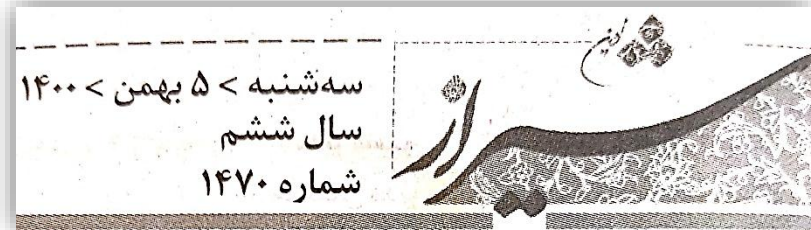 شیراز
نوین
سه‌شنبه > ۵ بهمن > ۱۴۰۰
سال ششم
شماره ۱۴۷۰